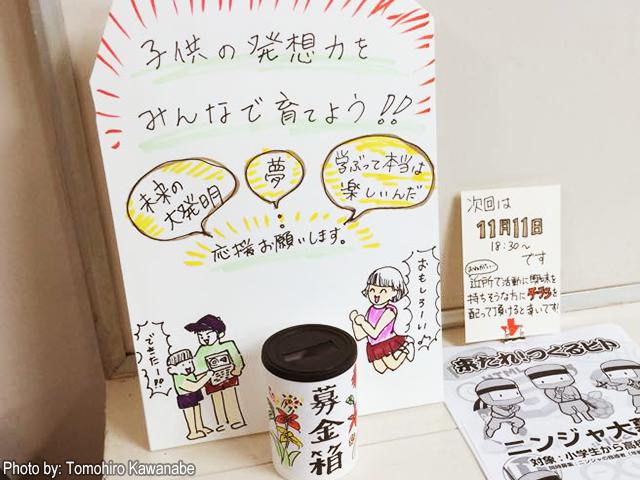 子供の発想力を
みんなで育てよう!!
未来の
大発明
夢
学ぶって本当は
楽しいんだ
応援お願いします。
おもしろーい♪
できたー!!
募金箱
次回は
11月11日
18:30〜
です
近所で活動に興味を
持ちそうな方にチラシを
配って頂けると幸いです!
来たれ!つくるヒト
ニンジャ大募
対象:小学生から高
Photo by: Tomohiro Kawanabe